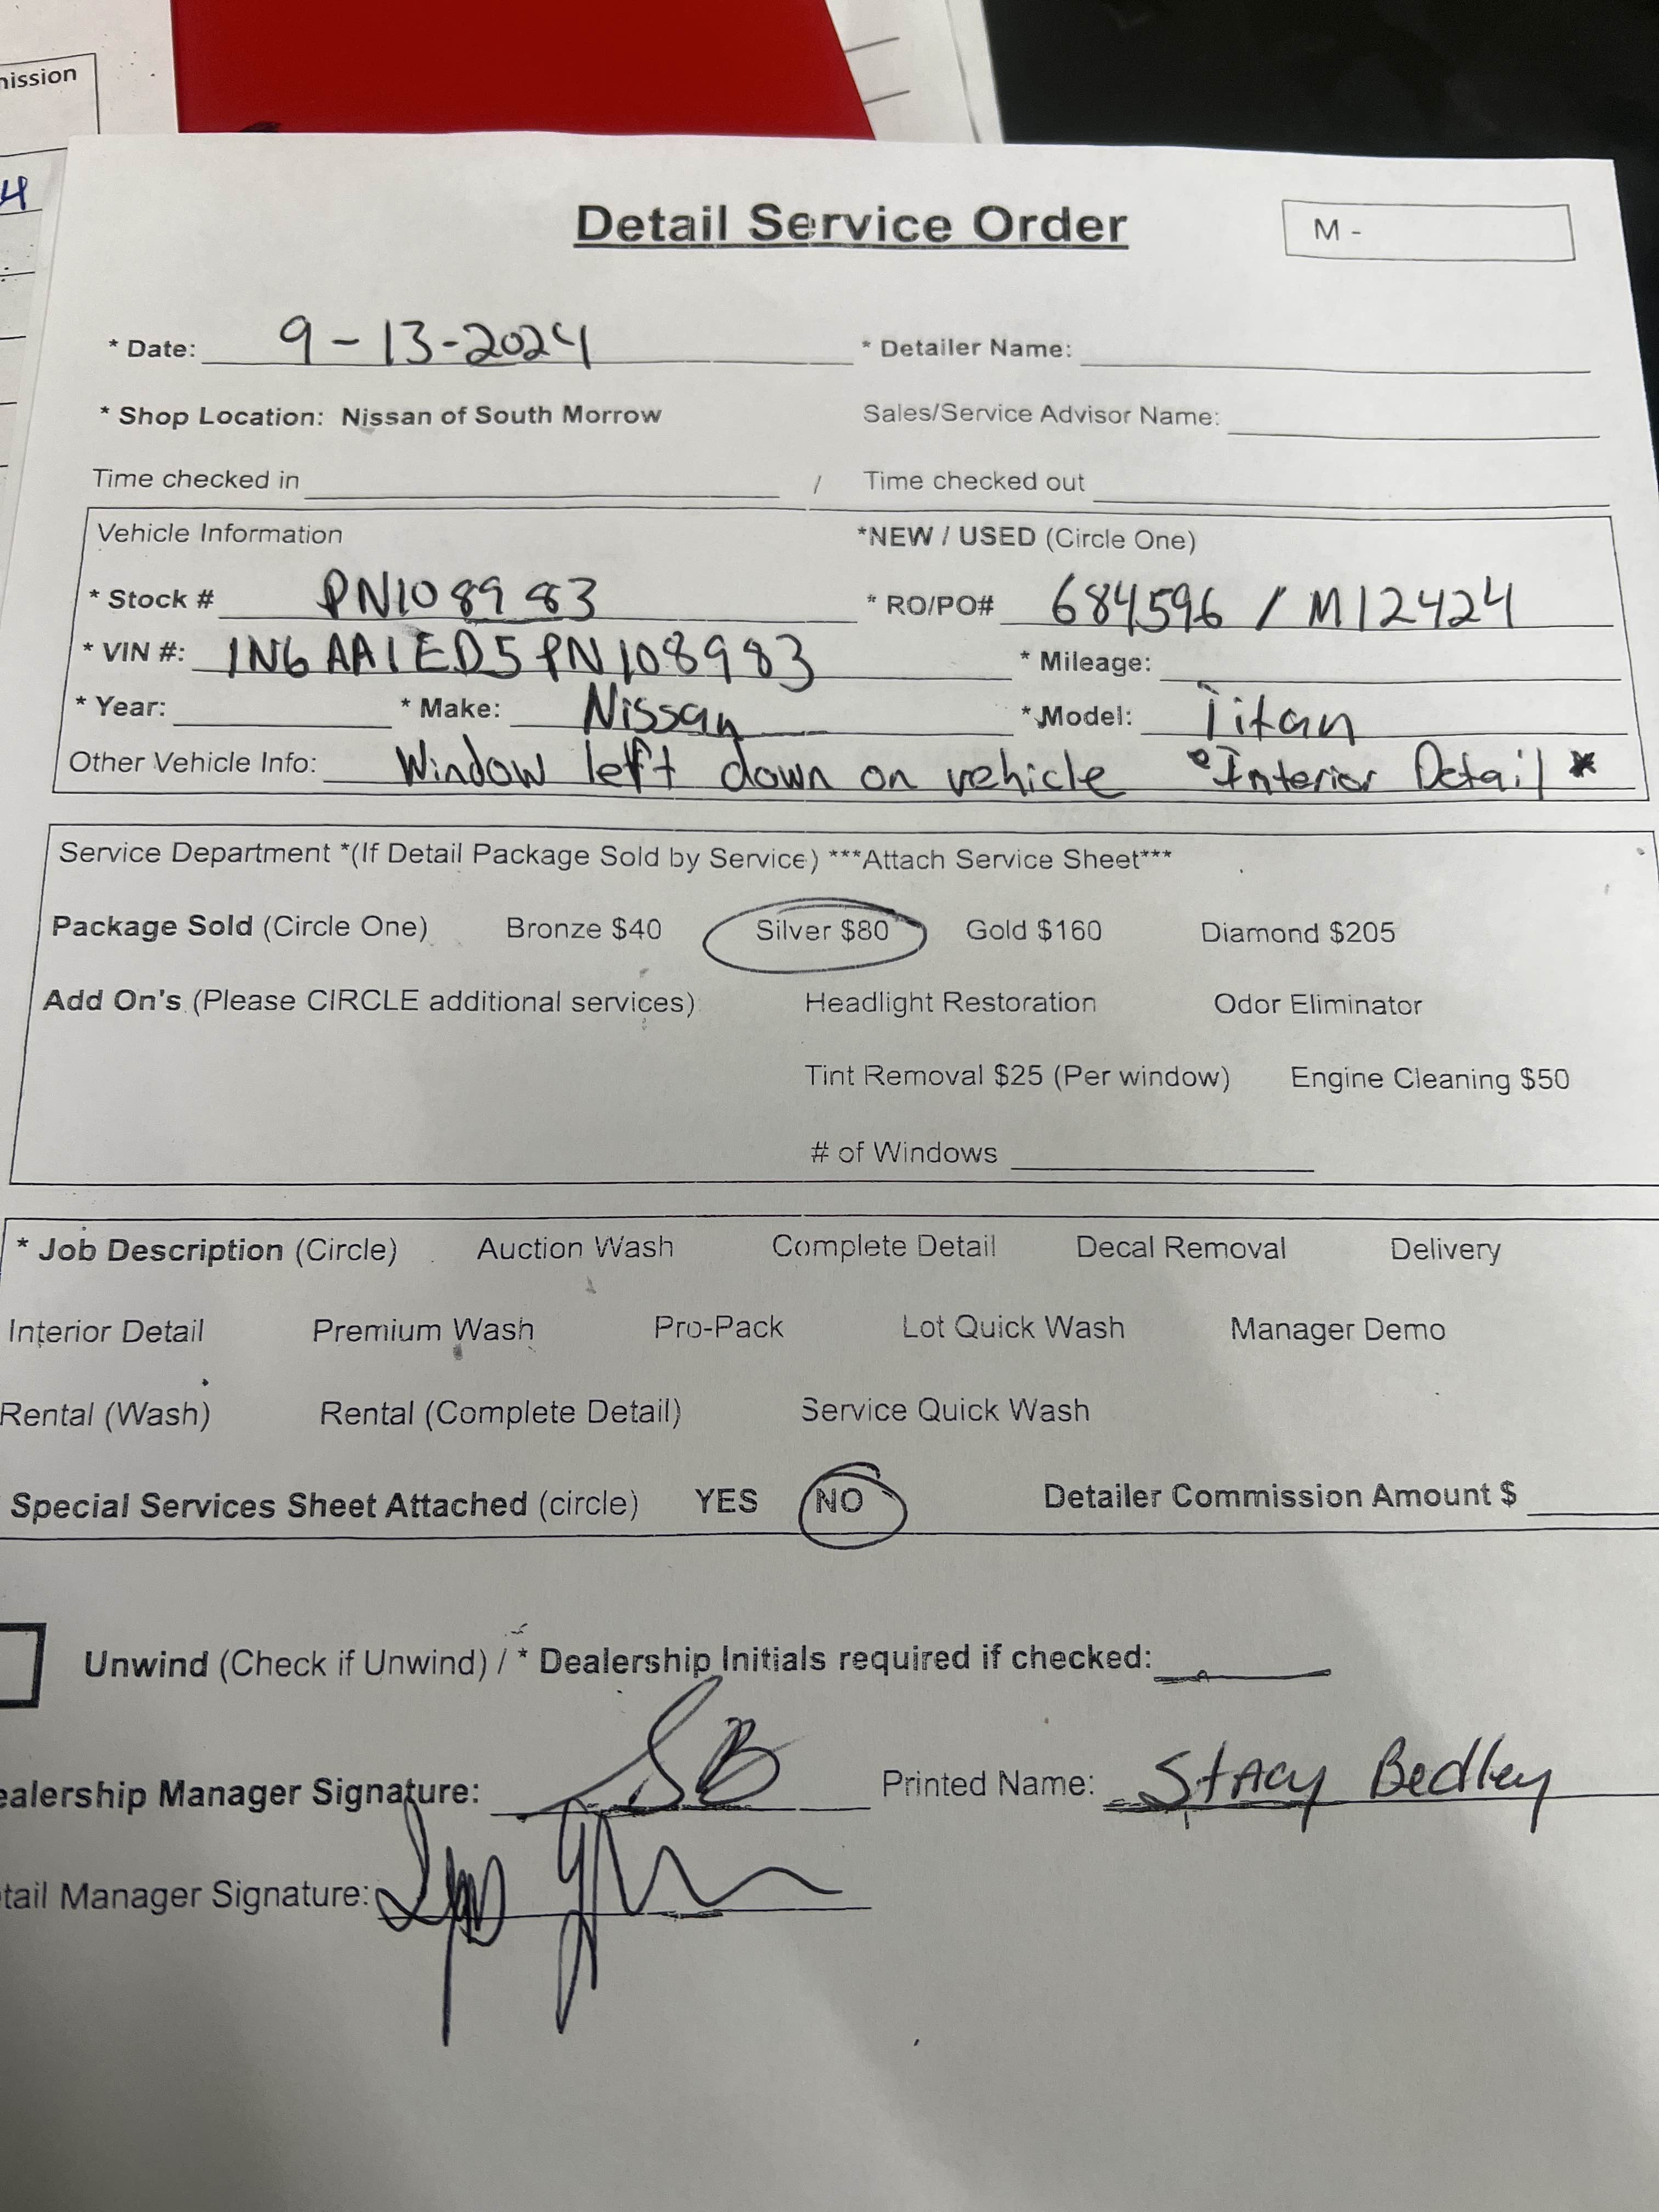 mission
4
Detail Service Order M -
* Date: 9-13-2024 * Detailer Name:
* Shop Location: Nissan of South Morrow Sales/Service Advisor Name:
Time checked in / Time checked out
Vehicle Information *NEW / USED (Circle One)
* Stock # PN108983 * RO/PO# 684596 / M12424
* VIN #: 1N6AA1ED5PN108983 * Mileage:
* Year: * Make: Nissan * Model: Titan
Other Vehicle Info: Window left down on vehicle Interior Detail *
Service Department *(If Detail Package Sold by Service) ***Attach Service Sheet***
Package Sold (Circle One) Bronze $40 Silver $80 Gold $160 Diamond $205
Add On's (Please CIRCLE additional services) Headlight Restoration Odor Eliminator
Tint Removal $25 (Per window) Engine Cleaning $50
# of Windows
* Job Description (Circle) Auction Wash Complete Detail Decal Removal Delivery
Interior Detail Premium Wash Pro-Pack Lot Quick Wash Manager Demo
Rental (Wash) Rental (Complete Detail) Service Quick Wash
Special Services Sheet Attached (circle) YES NO Detailer Commission Amount $
Unwind (Check if Unwind) / * Dealership Initials required if checked:
ealership Manager Signature: SB Printed Name: Stacy Bedley
tail Manager Signature: